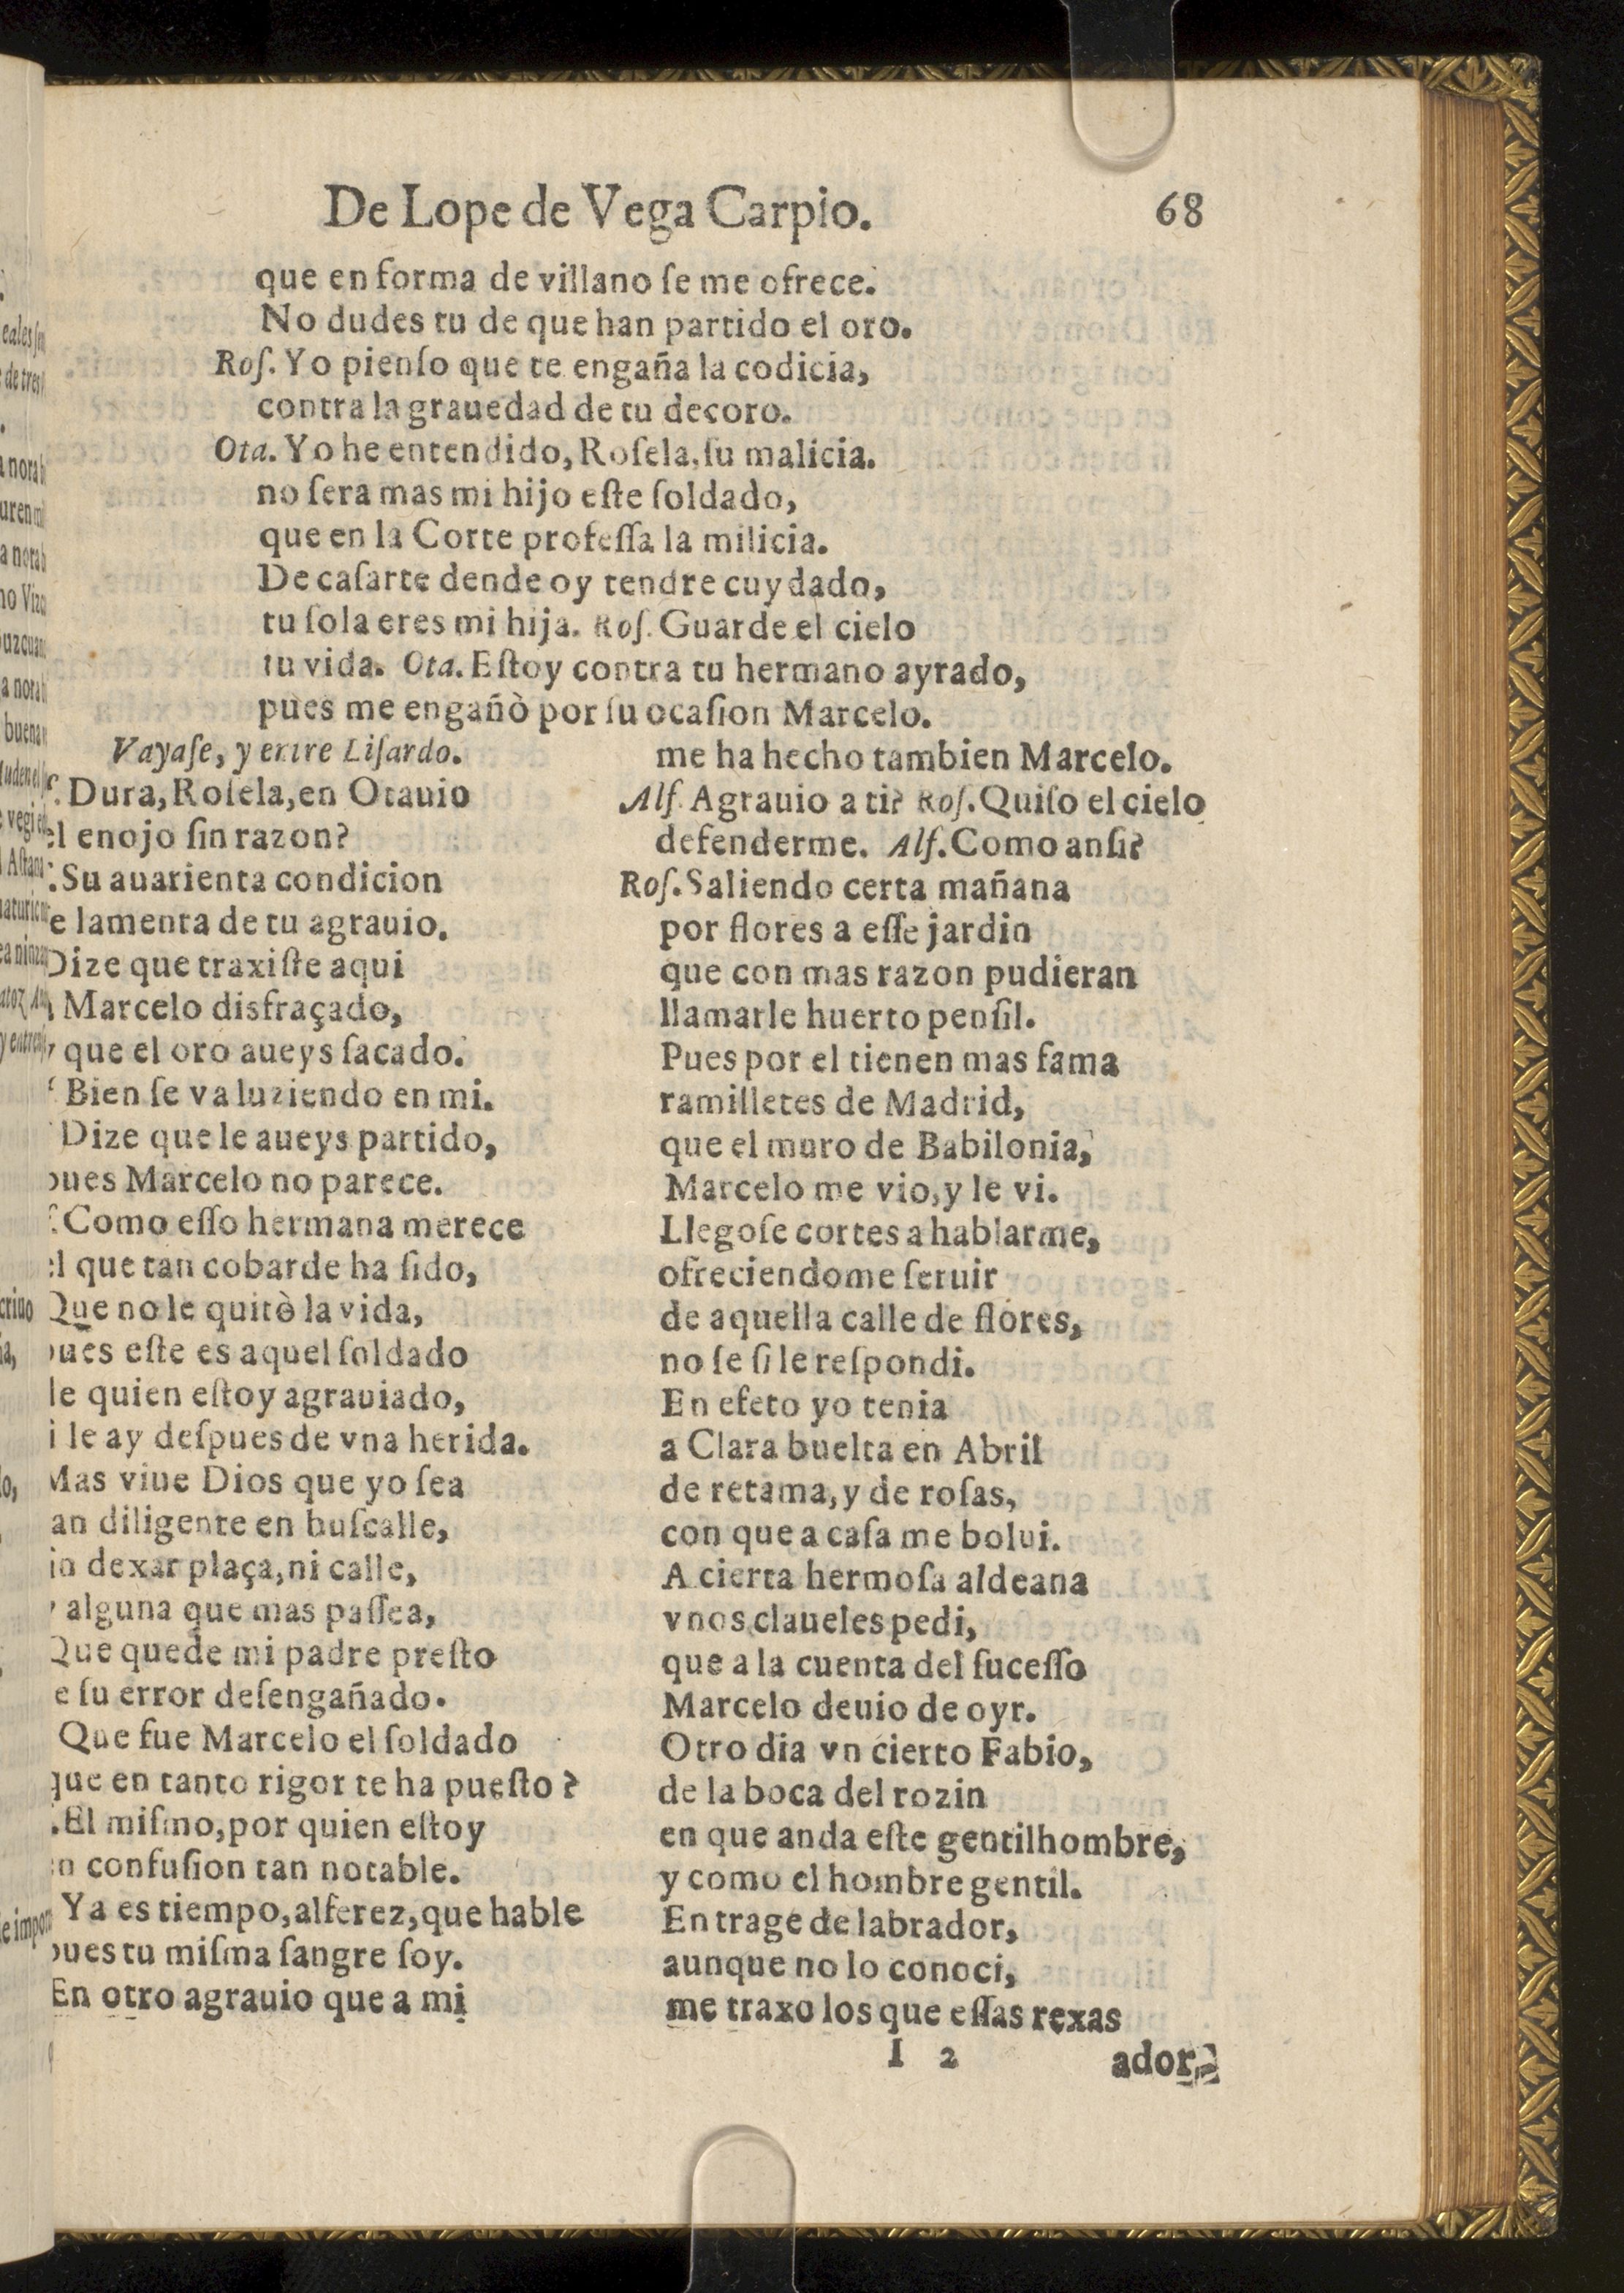 De Lope de Vega Carpio. 68
que en forma de villano ſe me ofrece.
No dudes tu de que han partido el oro.
Roſ. Yo pienſo que te engaña la codicia,
contra la grauedad de tu decoro.
Ota. Yo he entendido, Roſela, ſu malicia.
no ſera mas mi hijo eſte ſoldado,
que en la Corte profeſſa la milicia.
De caſarte dende oy tendre cuydado,
tu ſola eres mi hija. Roſ. Guarde el cielo
tu vida. Ota. Eſtoy contra tu hermano ayrado,
pues me engañò por ſu ocaſion Marcelo.
Vayaſe, y entre Liſardo.
Dura, Roſela, en Otauio
el enojo ſin razon?
Su auarienta condicion
e lamenta de tu agrauio.
Dize que traxiſte aqui
Marcelo disfraçado,
y que el oro aueys ſacado.
Bien ſe va luziendo en mi.
Dize que le aueys partido,
pues Marcelo no parece.
Como eſſo hermana merece
el que tan cobarde ha ſido,
Que no le quitò la vida,
pues eſte es aquel ſoldado
de quien eſtoy agrauiado,
i le ay deſpues de vna herida.
Mas viue Dios que yo ſea
an diligente en buſcalle,
in dexar plaça, ni calle,
y alguna que mas paſſea,
Que quede mi padre preſto
e ſu error deſengañado.
Que fue Marcelo el ſoldado
que en tanto rigor te ha pueſto?
El miſmo, por quien eſtoy
en confuſion tan notable.
Ya es tiempo, alferez, que hable
pues tu miſma ſangre ſoy.
En otro agrauio que a mi
me ha hecho tambien Marcelo.
Alſ. Agrauio a ti? Roſ. Quiſo el cielo
defenderme. Alſ. Como anſi?
Roſ. Saliendo certa mañana
por flores a eſſe jardin
que con mas razon pudieran
llamarle huerto penſil.
Pues por el tienen mas fama
ramilletes de Madrid,
que el muro de Babilonia,
Marcelo me vio, y le vi.
Llegoſe cortes a hablarme,
ofreciendome ſeruir
de aquella calle de flores,
no ſe ſi le reſpondi.
En efeto yo tenia
a Clara buelta en Abril
de retama, y de roſas,
con que a caſa me bolui.
A cierta hermoſa aldeana
vnos claueles pedi,
que a la cuenta del ſuceſſo
Marcelo deuio de oyr.
Otro dia vn cierto Fabio,
de la boca del rozin
en que anda eſte gentilhombre,
y como el hombre gentil.
En trage de labrador,
aunque no lo conoci,
me traxo los que eſſas rexas
I 2 ador-